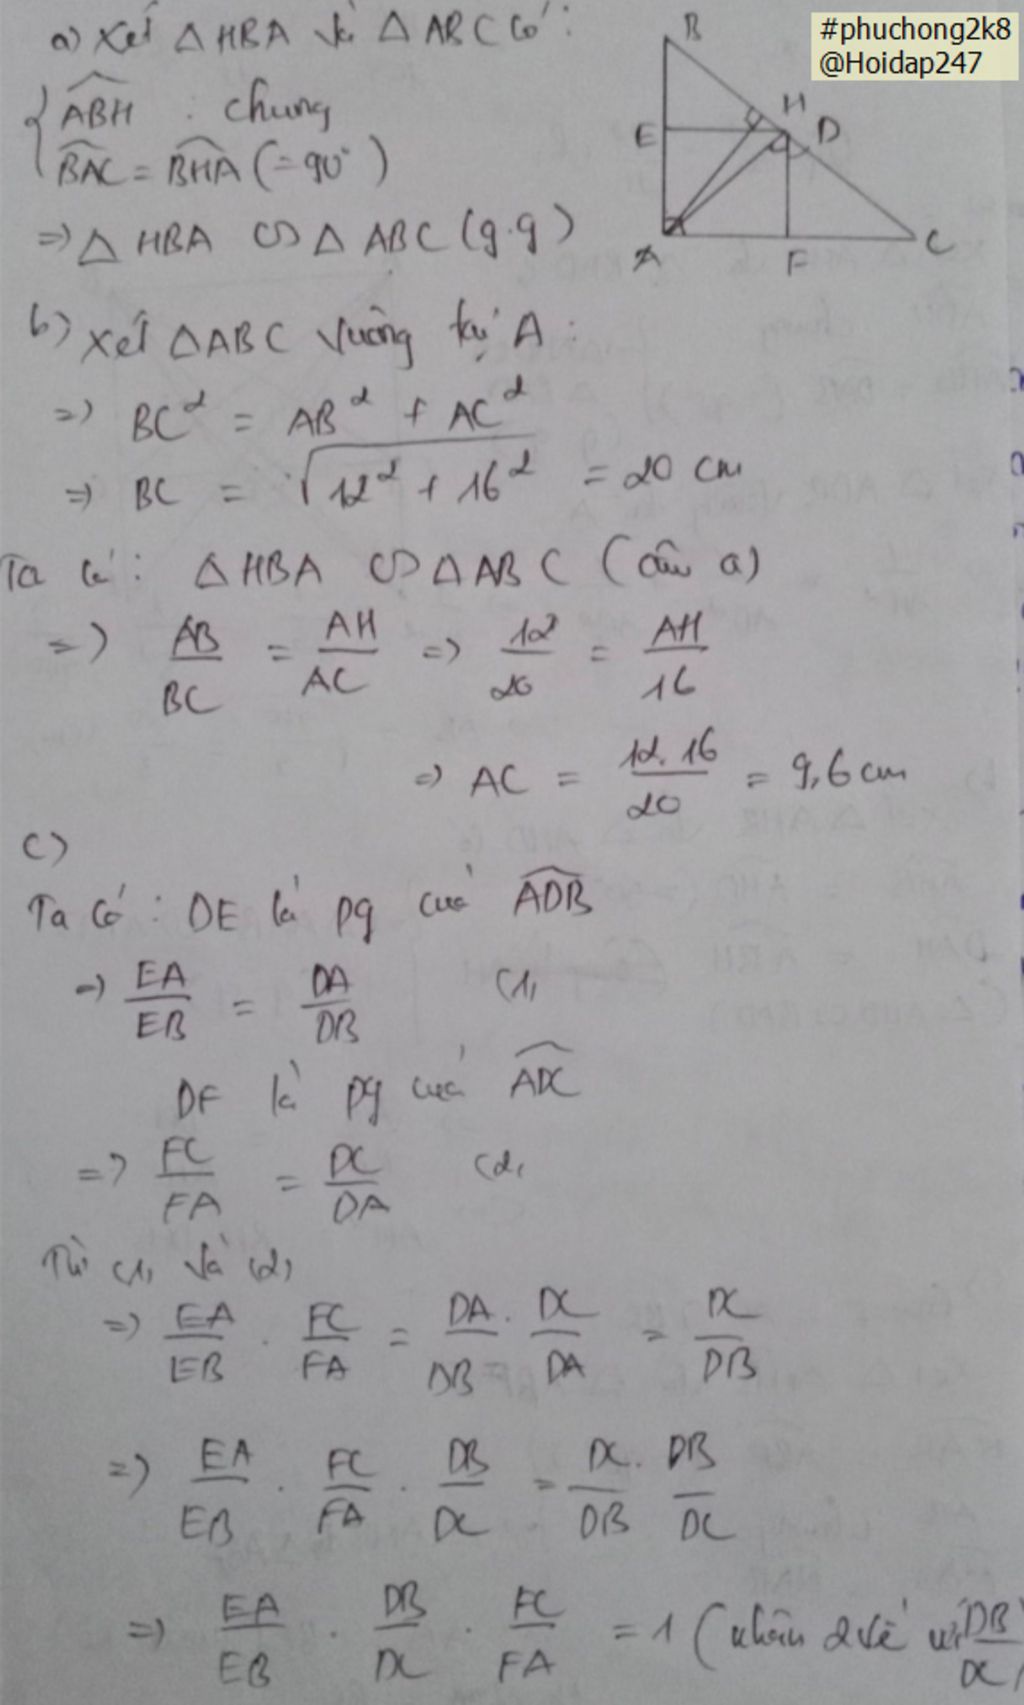 #phuchong2k8
@Hoidap247
a) Xét △HBA và △ABC có:
ABH : chung
BAC = BHA (=90°)
=> △HBA ∽ △ABC (g.g)
B
H
E
D
A
F
C
b) Xét △ABC vuông tại A:
=> BC² = AB² + AC²
=> BC = √12² + 16² = 20 cm
Ta có: △HBA ∽ △ABC (câu a)
=> AB/BC = AH/AC => 12/20 = AH/16
=> AC = 12.16/20 = 9,6 cm
c)
Ta có: DE là pg của ADB
=> EA/EB = DA/DB (1)
DF là pg của ADC
=> FC/FA = DC/DA (2)
Từ (1) và (2)
=> EA/EB . FC/FA = DA/DB . DC/DA = DC/DB
=> EA/EB . FC/FA . DB/DC = DC/DB . DB/DC
=> EA/EB . DB/DC . FC/FA = 1 (nhân 2 vế với DB/DC)